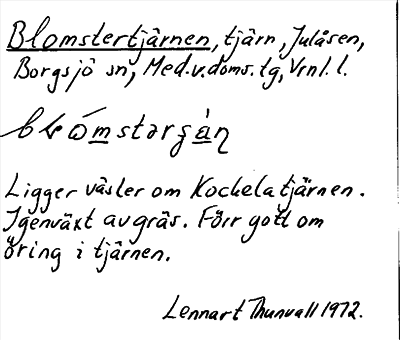 Blomstertjärnen, tjärn, Julåsen,
Borgsjö sn, Med.v.doms.lg, Vrnl. l.
Ligger väster om Kockelatjärnen.
Igenväxt av gräs. Förr gott om
öring i tjärnen.
Lennart Thunvall 1972.